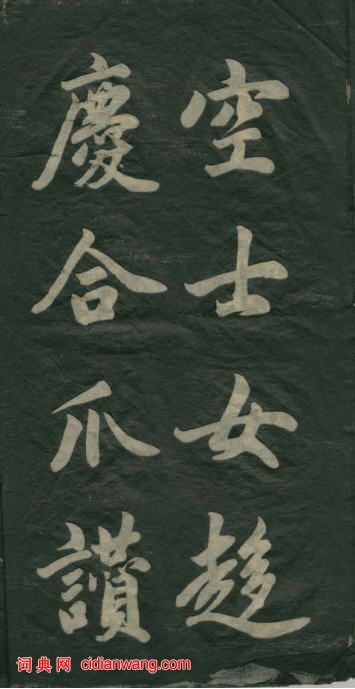 空士女趍
慶合爪讃
词典网 cidianwang.com